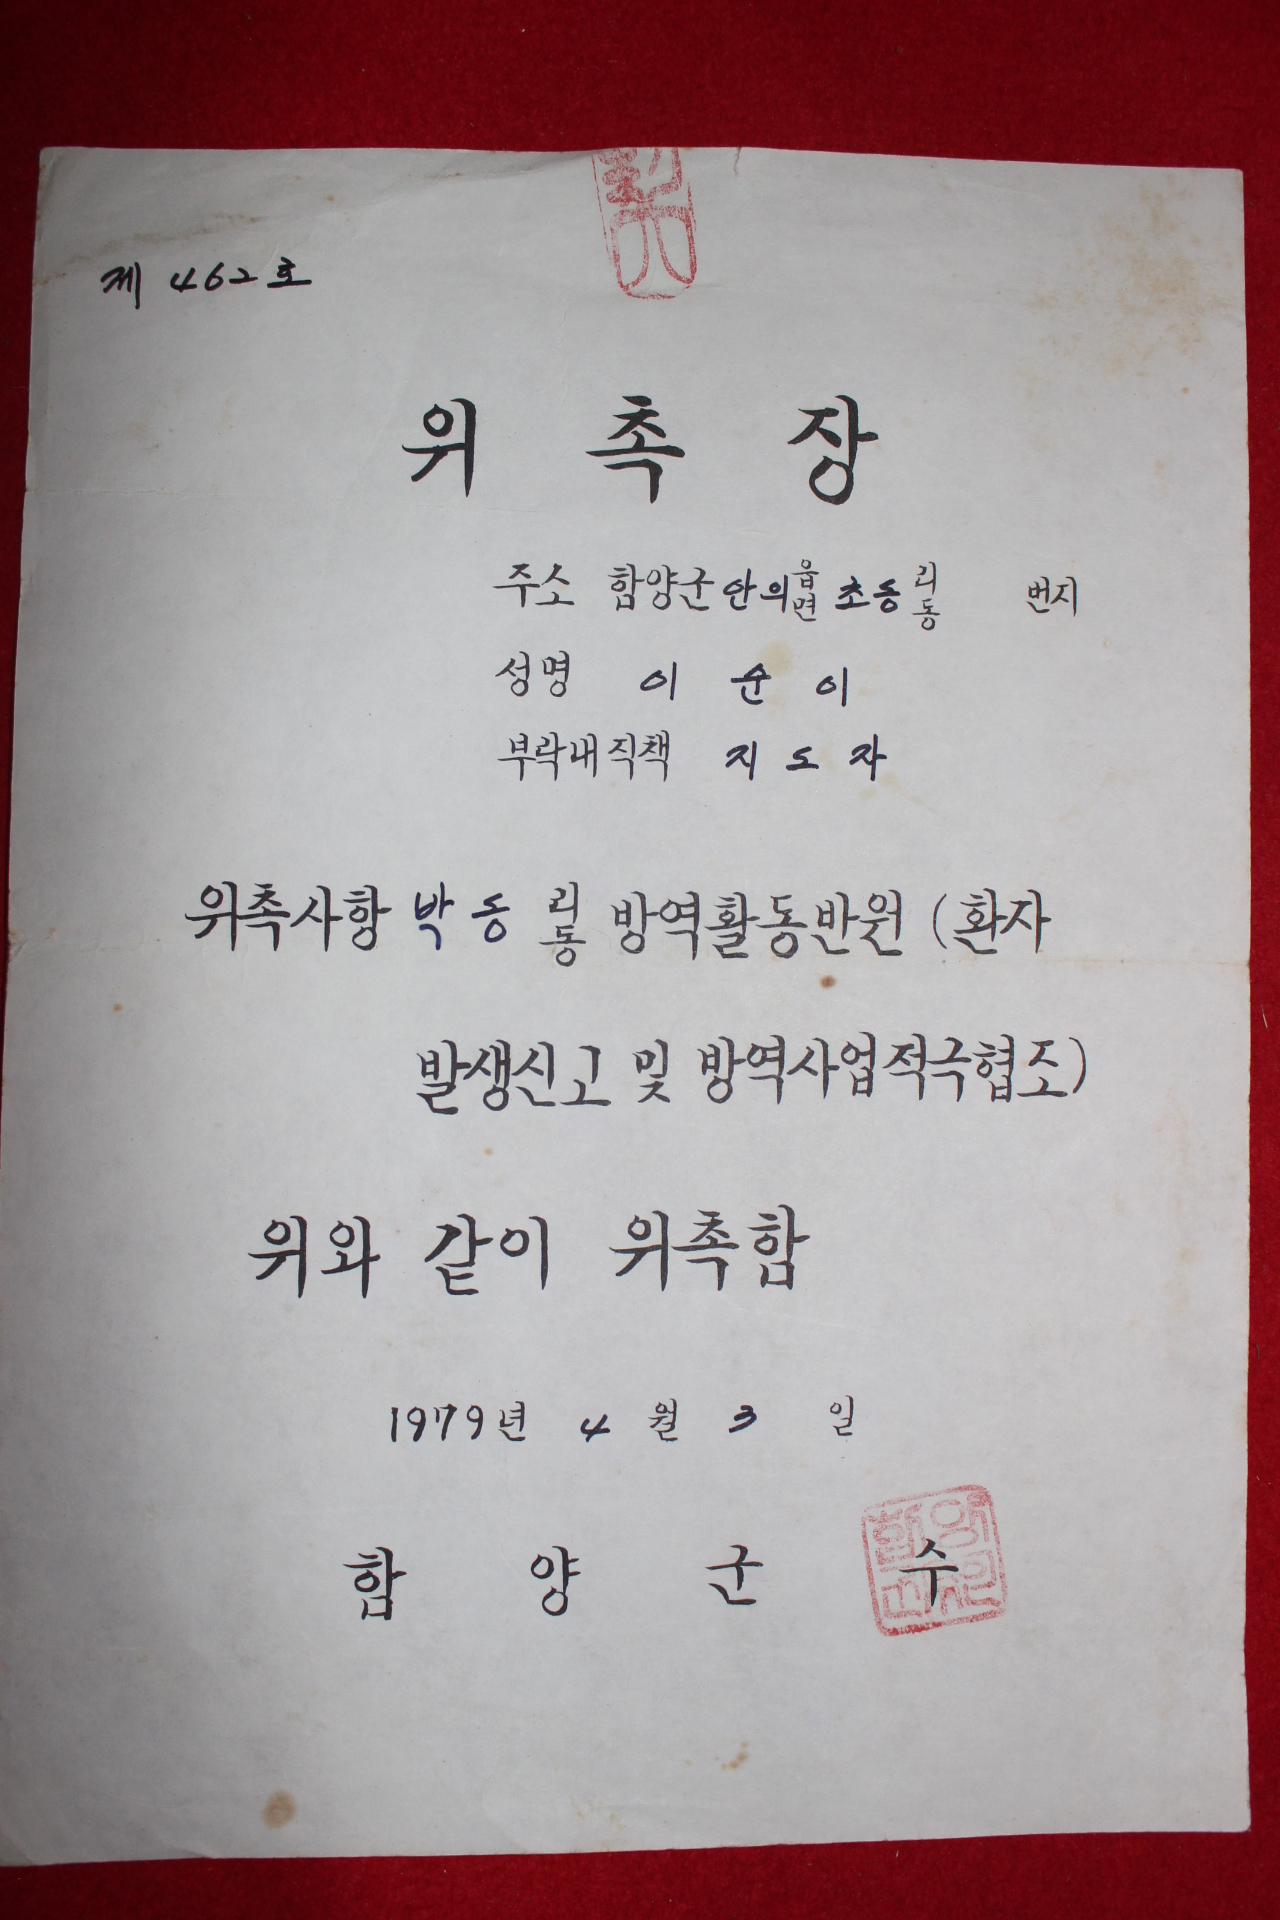 제 462호
위 촉 장
주소 함양군 안의 읍면 초동 리동 번지
성명 이 순 이
부락내직책 지 도 자
위촉사항 박 동 리동 방역활동반원 (환자
발생신고 및 방역사업적극협조)
위와 같이 위촉함
1979년 4 월 3 일
함 양 군 수